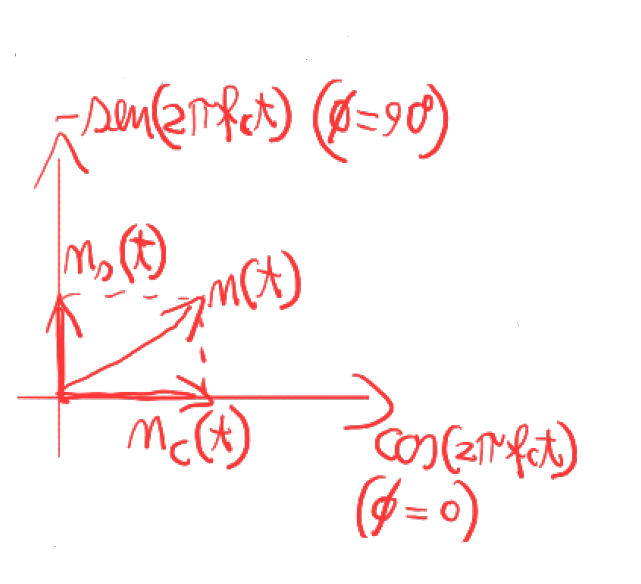 -sen(2πfct) (ϕ=90°)
ns(t)
n(t)
nc(t)
cos(2πfct)
(ϕ=0)